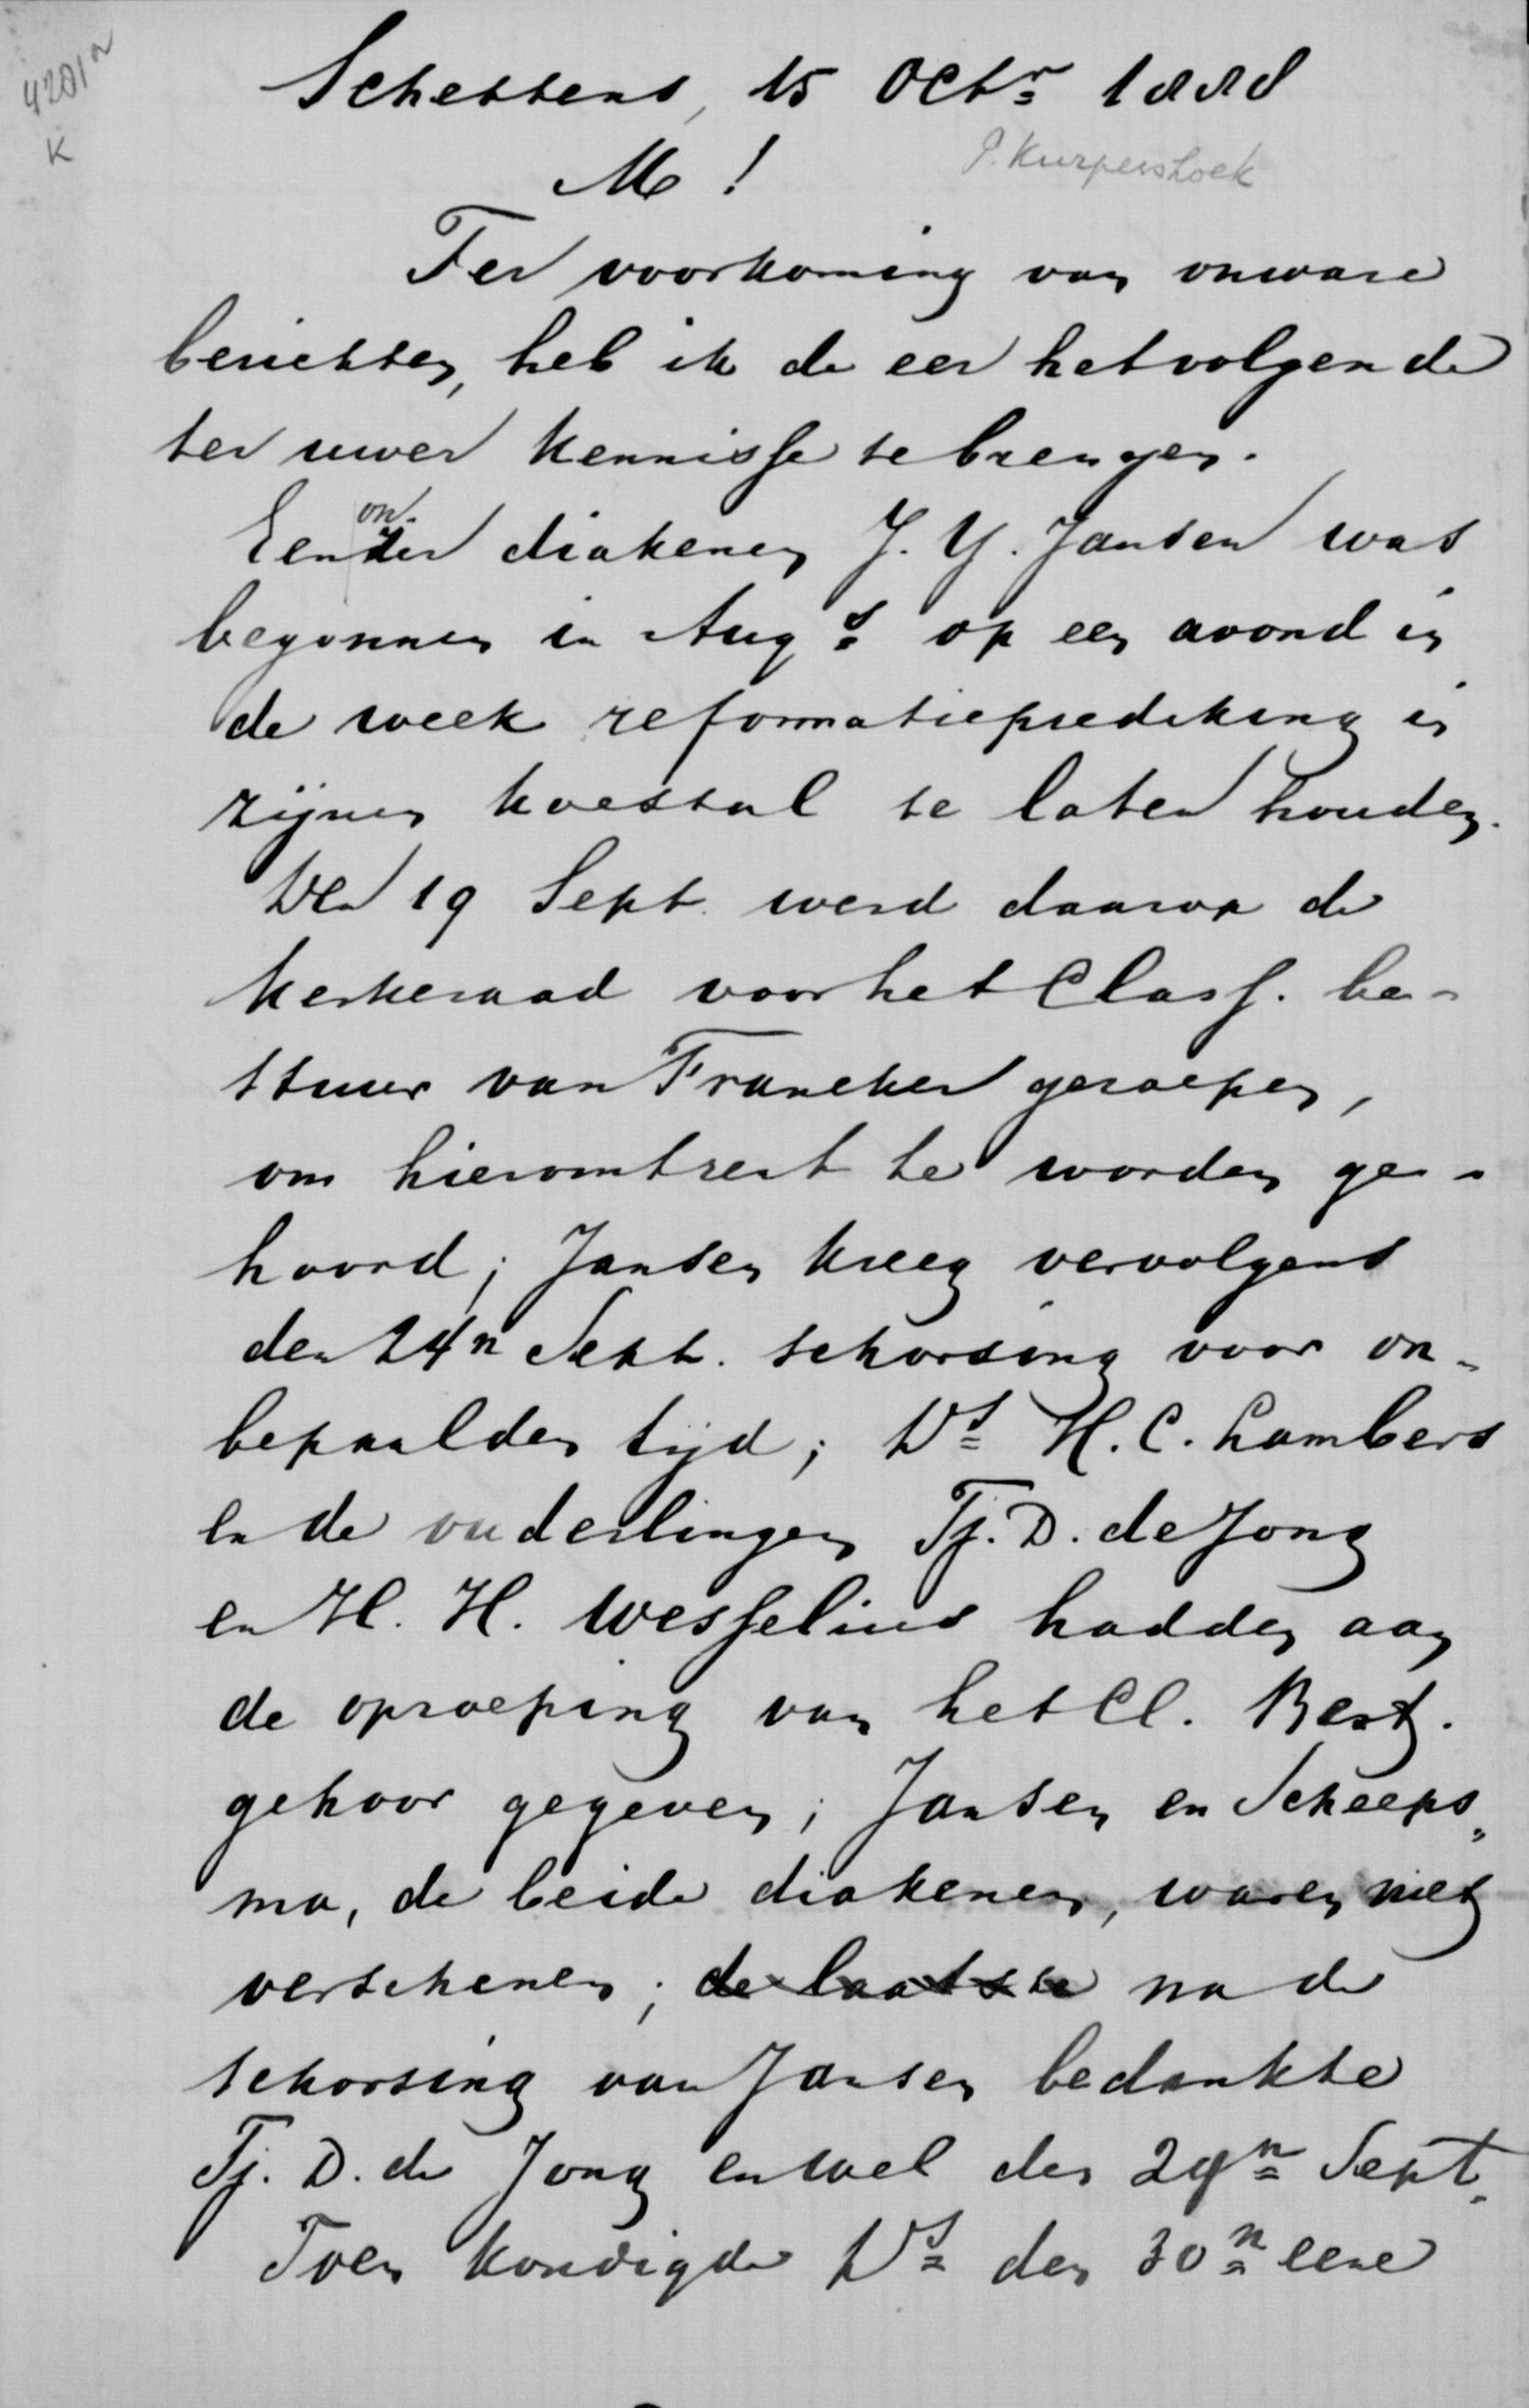 4201a
K
Schettens, 15 Octr 1888
M!
P. Kurpershoek
Ter voorkoming van onware
berichten, heb ik de eer het volgende
ter uwer kennisse te brengen.
Een on-
zer diakenen J. Y. Jansen was
begonnen in Augs op een avond in
de week reformatieprediking in
zijnen koestal te laten houden.
Den 19 Sept. werd daarop de
kerkeraad voor het Class. be-
stuur van Franeker geroepen,
om hieromtrent te worden ge-
hoord; Jansen kreeg vervolgens
den 24n Sept. schorsing voor on-
bepaalden tijd; Ds H. C. Lambers
en de ouderlingen Tj. D. de Jong
en H. H. Wesselius hadden aan
de oproeping van het Cl. Best.
gehoor gegeven; Jansen en Scheeps-
ma, de beide diakenen, waren niet
verschenen; de laatste na de
schorsing van Jansen bedankte
Tj. D. de Jong en wel den 29n Sept.
Toen kondigde Ds den 30n eene